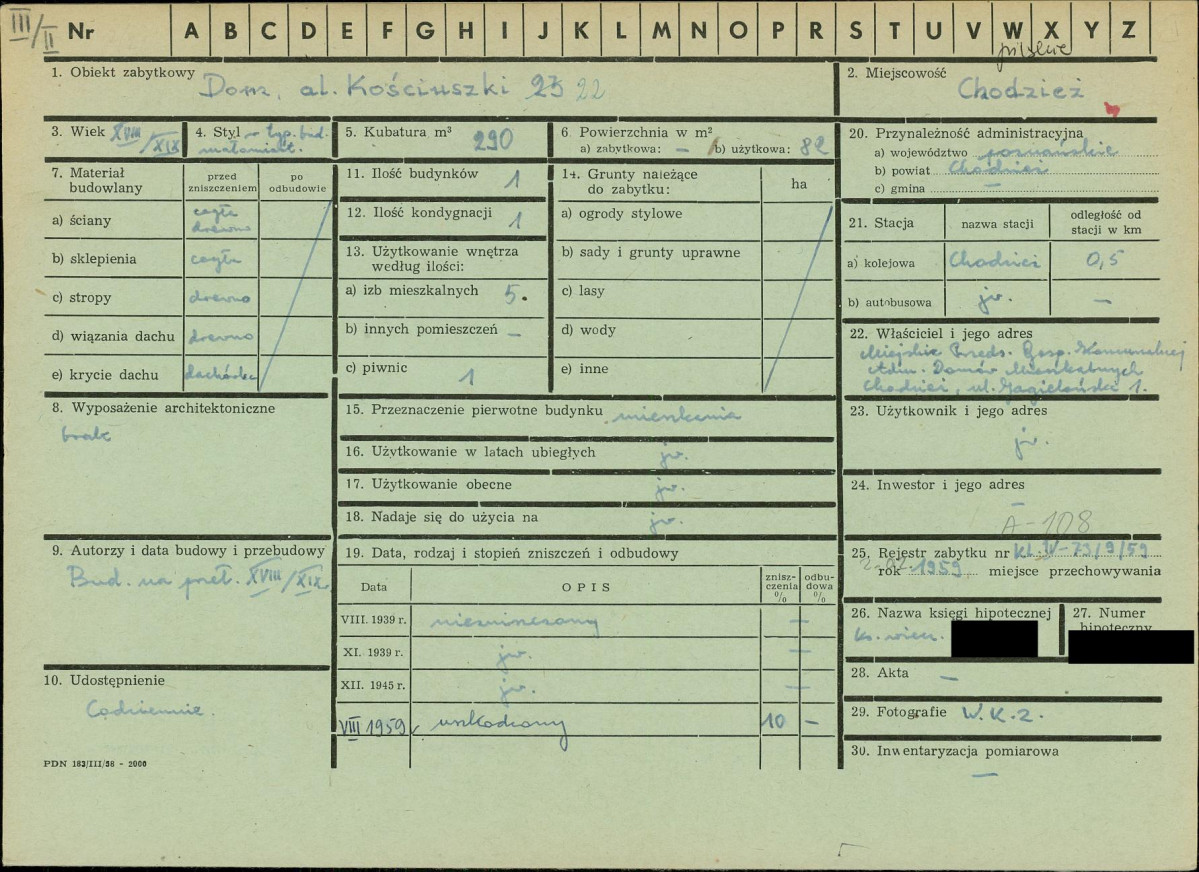 III/II Nr A B C D E F G H I J K L M N O P R S T U V W X Y Z
pilskie
1. Obiekt zabytkowy Dom, al. Kościuszki 23 22
2. Miejscowość Chodzież
3. Wiek XVIII/XIX
4. Styl w typ. bud. małomiast.
5. Kubatura m³ 290
6 Powierzchnia w m²
a) zabytkowa: — b) użytkowa: 82
7. Materiał budowlany
przed zniszczeniem
po odbudowie
a) ściany cegła drewno
b) sklepienia cegła
c) stropy drewno
d) wiązania dachu drewno
e) krycie dachu dachówka
8. Wyposażenie architektoniczne
brak
9. Autorzy i data budowy i przebudowy
Bud. na przeł. XVIII/XIX.
10. Udostępnienie
Codziennie.
PDN 183/III/58 - 2000
11. Ilość budynków 1
12. Ilość kondygnacji 1
13. Użytkowanie wnętrza według ilości:
a) izb mieszkalnych 5.
b) innych pomieszczeń —
c) piwnic 1
14. Grunty należące do zabytku:
ha
a) ogrody stylowe
b) sady i grunty uprawne
c) lasy
d) wody
e) inne
15. Przeznaczenie pierwotne budynku mieszkania
16. Użytkowanie w latach ubiegłych jw.
17. Użytkowanie obecne jw.
18. Nadaje się do użycia na jw.
19. Data, rodzaj i stopień zniszczeń i odbudowy
Data OPIS zniszczenia % odbudowa %
VIII. 1939 r. niezniszczony —
XI. 1939 r. jw. —
XII. 1945 r. jw. —
VIII 1959 uszkodzony 10 —
20. Przynależność administracyjna
a) województwo poznańskie
b) powiat Chodzież
c) gmina —
21. Stacja nazwa stacji odległość od stacji w km
a) kolejowa Chodzież 0,5
b) autobusowa jw. —
22. Właściciel i jego adres
Miejskie Przeds. Gosp. Komunalnej
Adm. Domów Mieszkalnych
Chodzież, ul. Jagiellońska 1.
23. Użytkownik i jego adres
jw.
24. Inwestor i jego adres
—
A-108
25. Rejestr zabytku nr KL.IV-73/9/59
rok 1959 miejsce przechowywania
26. Nazwa księgi hipotecznej
ks. wiecz.
27. Numer hipoteczny
28. Akta —
29. Fotografie W.K.Z.
30. Inwentaryzacja pomiarowa
—